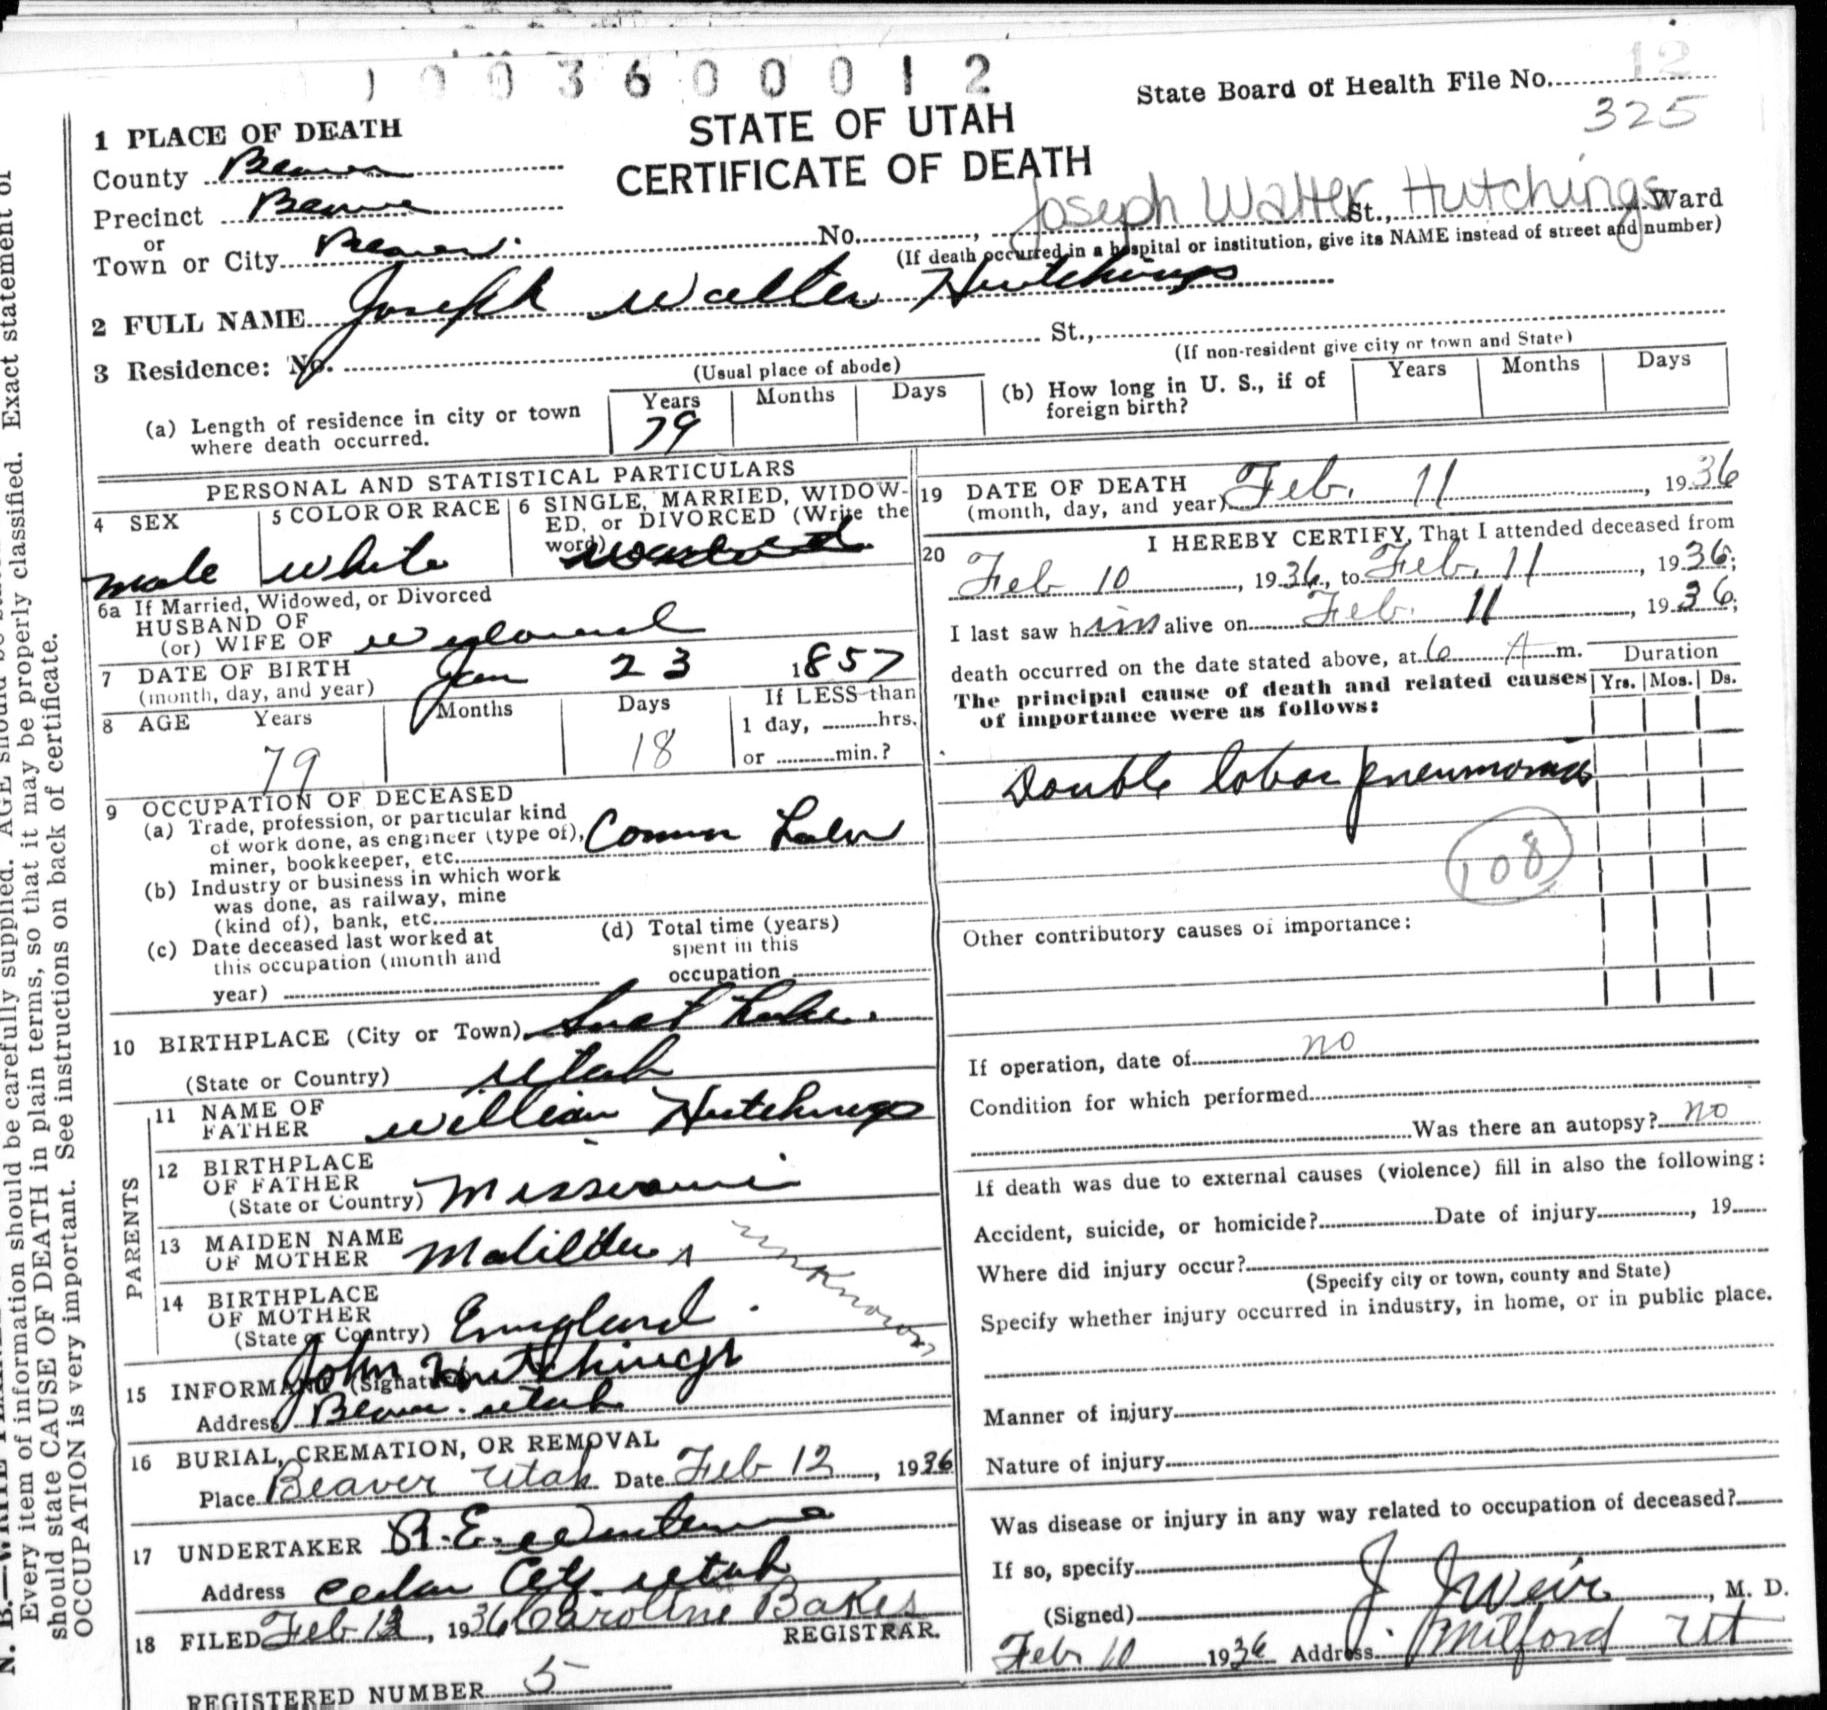 1003600012
State Board of Health File No. 12
325
STATE OF UTAH
CERTIFICATE OF DEATH
1 PLACE OF DEATH
County Beaver
Precinct Beaver
or
Town or City Beaver. No. , Joseph Walter Hutchings St., Ward
(If death occurred in a hospital or institution, give its NAME instead of street and number)
2 FULL NAME Joseph Walter Hutchings
3 Residence: No. St.,
(Usual place of abode)
(If non-resident give city or town and State)
(a) Length of residence in city or town where death occurred. Years 79 Months Days
(b) How long in U. S., if of foreign birth? Years Months Days
PERSONAL AND STATISTICAL PARTICULARS
4 SEX
male
5 COLOR OR RACE
white
6 SINGLE, MARRIED, WIDOW-
ED, or DIVORCED (Write the
word)
6a If Married, Widowed, or Divorced
HUSBAND OF
(or) WIFE OF widowed
7 DATE OF BIRTH
(month, day, and year) Jan 23 1857
8 AGE Years Months Days If LESS than
79 18 1 day, hrs.
or min.?
9 OCCUPATION OF DECEASED
(a) Trade, profession, or particular kind
of work done, as engineer (type of),
miner, bookkeeper, etc.
(b) Industry or business in which work
was done, as railway, mine
(kind of), bank, etc.
(c) Date deceased last worked at
this occupation (month and
year)
(d) Total time (years)
spent in this
occupation
10 BIRTHPLACE (City or Town) Lake.
(State or Country) Utah
PARENTS
11 NAME OF
FATHER William Hutchings
12 BIRTHPLACE
OF FATHER
(State or Country) Missouri
13 MAIDEN NAME
OF MOTHER Matilda unknown
14 BIRTHPLACE
OF MOTHER
(State or Country) England.
15 INFORMANT (Signature) John Hutchings
Address Beaver. Utah
16 BURIAL, CREMATION, OR REMOVAL
Place Beaver Utah Date Feb 12, 1936
17 UNDERTAKER R. E.
Address Cedar City. Utah
18 FILED Feb , 1936 Caroline Bakes
REGISTRAR.
REGISTERED NUMBER 5
19 DATE OF DEATH
(month, day, and year) Feb. 11, 1936
20 I HEREBY CERTIFY, That I attended deceased from
Feb 10, 1936, to Feb. 11, 1936;
I last saw him alive on Feb. 11, 1936;
death occurred on the date stated above, at 6 A m.
The principal cause of death and related causes
of importance were as follows:
Duration
Yrs. Mos. Ds.
Double lobar pneumonia
108
Other contributory causes of importance:
If operation, date of no
Condition for which performed
Was there an autopsy? no
If death was due to external causes (violence) fill in also the following:
Accident, suicide, or homicide? Date of injury , 19
Where did injury occur?
(Specify city or town, county and State)
Specify whether injury occurred in industry, in home, or in public place.
Manner of injury
Nature of injury
Was disease or injury in any way related to occupation of deceased?
If so, specify
(Signed) J. J Weir, M. D.
Feb 10 1936 Address Milford Ut
Every item of information should be carefully supplied. AGE should be
should state CAUSE OF DEATH in plain terms, so that it may be properly classified. Exact statement of
OCCUPATION is very important. See instructions on back of certificate.